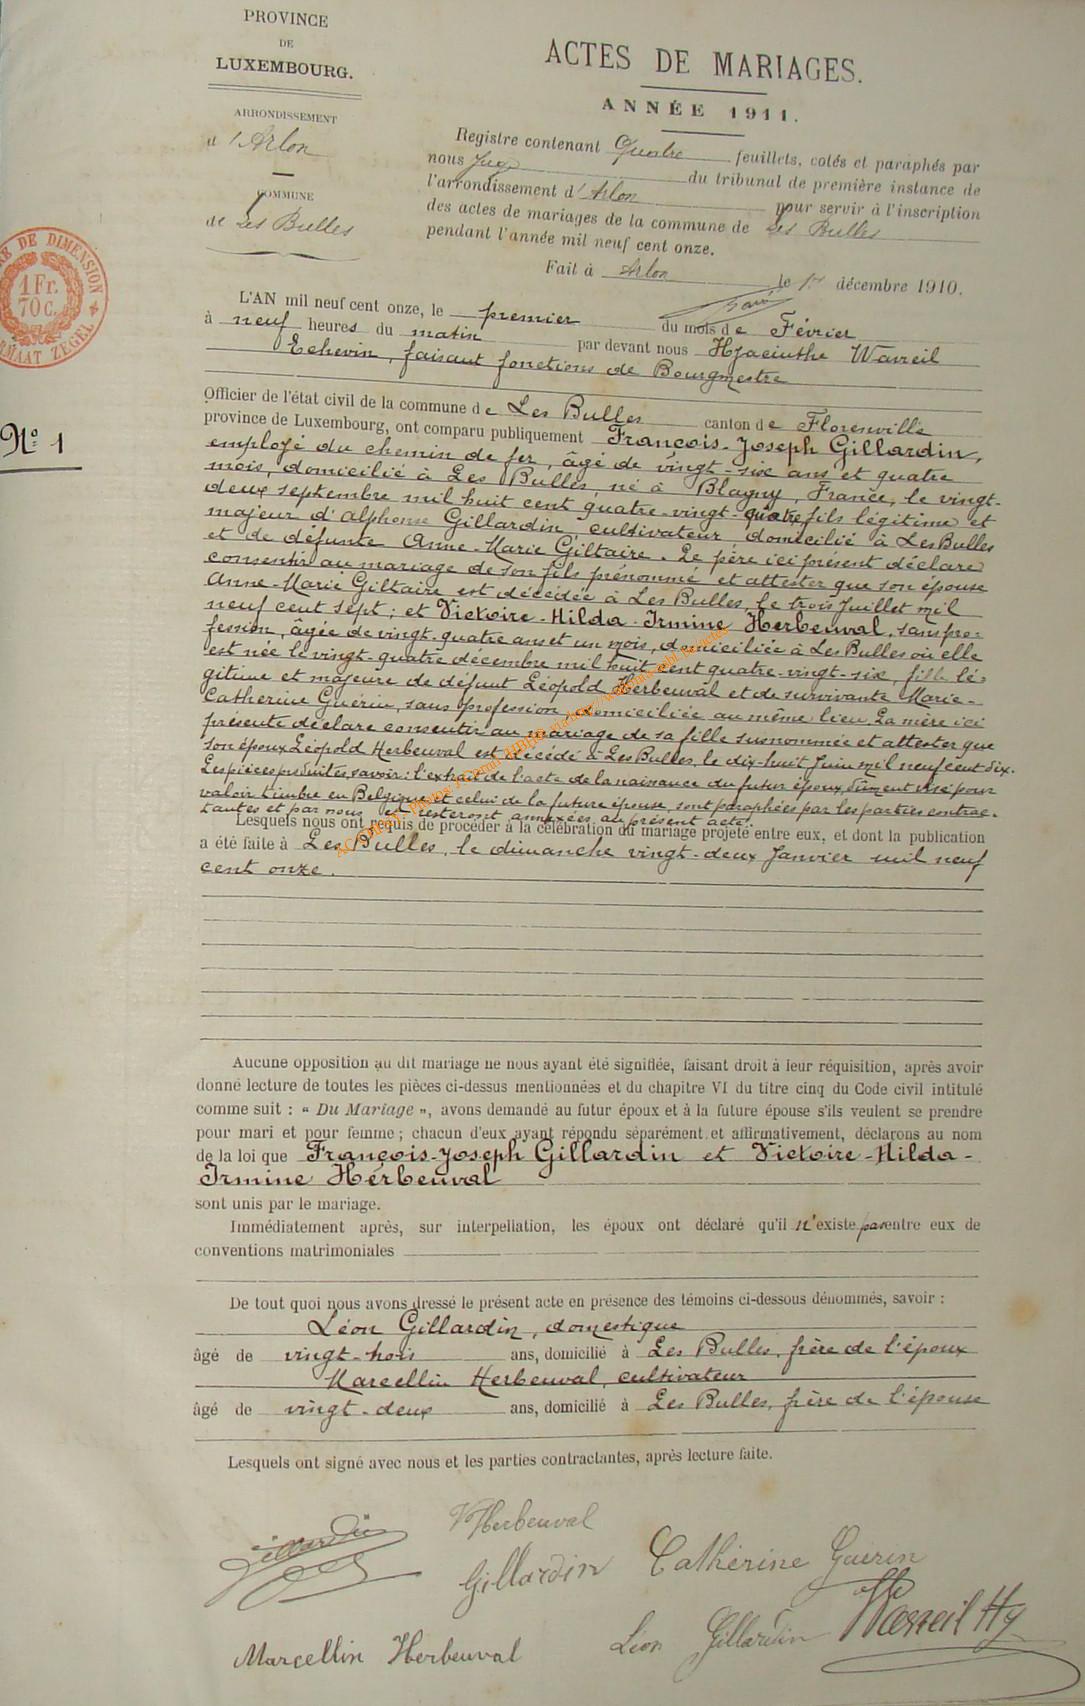 PROVINCE
DE
LUXEMBOURG.
ARRONDISSEMENT
d'Arlon
COMMUNE
de Les Bulles
ACTES DE MARIAGES.
ANNÉE 1911.
Registre contenant Quatre feuillets, cotés et paraphés par
nous Juge du tribunal de première instance de
l'arrondissement d'Arlon pour servir à l'inscription
des actes de mariages de la commune de Les Bulles
pendant l'année mil neuf cent onze.
Fait à Arlon le 1er décembre 1910.
RE DE DIMENSION
1 Fr.
70 C.
RMAAT ZEGEL
L'AN mil neuf cent onze, le premier du mois de Février
à neuf heures du matin par devant nous Hyacinthe Warreil
Echevin, faisant fonctions de Bourgmestre
Officier de l'état civil de la commune de Les Bulles canton de Florenville
province de Luxembourg, ont comparu publiquement François-Joseph Gillardin,
No 1
employé du chemin de fer, âgé de vingt-six ans et quatre
mois, domicilié à Les Bulles, né à Blagny, France, le vingt-
deux septembre mil huit cent quatre-vingt-quatre, fils légitime et
majeur d'Alphonse Gillardin, cultivateur, domicilié à Les Bulles
et de défunte Anne-Marie Giltaire. Le père ici présent déclare
consentir au mariage de son fils prénommé et attester que son épouse
Anne-Marie Giltaire est décédée à Les Bulles, le trois Juillet mil
neuf cent sept; et Victoire-Hilda-Irmine Herbeuval, sans pro-
fession, âgée de vingt-quatre ans et un mois, domiciliée à Les Bulles où elle
est née le vingt-quatre décembre mil huit cent quatre-vingt-six, fille lé-
gitime et majeure de défunt Léopold Herbeuval et de survivante Marie-
Catherine Guérin, sans profession, domiciliée au même lieu. La mère ici
présente déclare consentir au mariage de sa fille susnommée et attester que
son époux Léopold Herbeuval est décédé à Les Bulles, le dix-huit Juin mil neuf cent dix.
Les pièces produites, savoir: l'extrait de l'acte de la naissance du futur époux, dûment visé pour
valoir timbre en Belgique et celui de la future épouse, sont paraphées par les parties contrac-
tantes et par nous et resteront annexées au présent acte.
Lesquels nous ont requis de procéder à la célébration du mariage projeté entre eux, et dont la publication
a été faite à Les Bulles, le dimanche vingt-deux Janvier mil neuf
cent onze.
Aucune opposition au dit mariage ne nous ayant été signifiée, faisant droit à leur réquisition, après avoir
donné lecture de toutes les pièces ci-dessus mentionnées et du chapitre VI du titre cinq du Code civil intitulé
comme suit : « Du Mariage », avons demandé au futur époux et à la future épouse s'ils veulent se prendre
pour mari et pour femme ; chacun d'eux ayant répondu séparément et affirmativement, déclarons au nom
de la loi que François-Joseph Gillardin et Victoire-Hilda-
Irmine Hérbeuval
sont unis par le mariage.
Immédiatement après, sur interpellation, les époux ont déclaré qu'il n'existe pas entre eux de
conventions matrimoniales
De tout quoi nous avons dressé le présent acte en présence des témoins ci-dessous dénommés, savoir :
Léon Gillardin, domestique
âgé de vingt-trois ans, domicilié à Les Bulles, frère de l'époux
Marcellin Herbeuval, cultivateur
âgé de vingt-deux ans, domicilié à Les Bulles, frère de l'épouse
Lesquels ont signé avec nous et les parties contractantes, après lecture faite.
Gillardin
V Herbeuval
Gillardin Catherine Guérin
Marcellin Herbeuval
Léon Gillardin
Warreil Hy